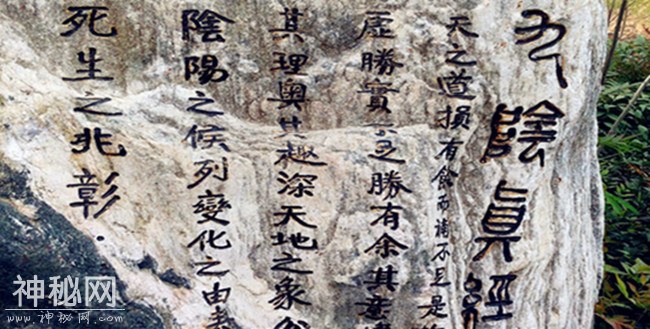 九陰眞經
天之道損有餘而補不足是
虛勝實不足勝有余其意
其理奧其趣深天地之象分
陰陽之候列變化之由表
死生之兆彰.
神秘网
WWW.神秘网.COM